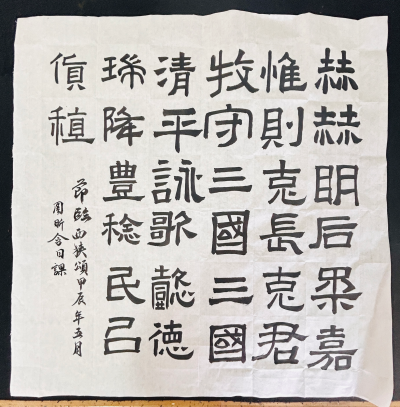 赫赫明后柔嘉
惟則克長克君
牧守三國三國
清平詠歌懿德
瑞降豊稔民㠯
貨稙
節臨西狹頌甲辰年五月
周昕日課